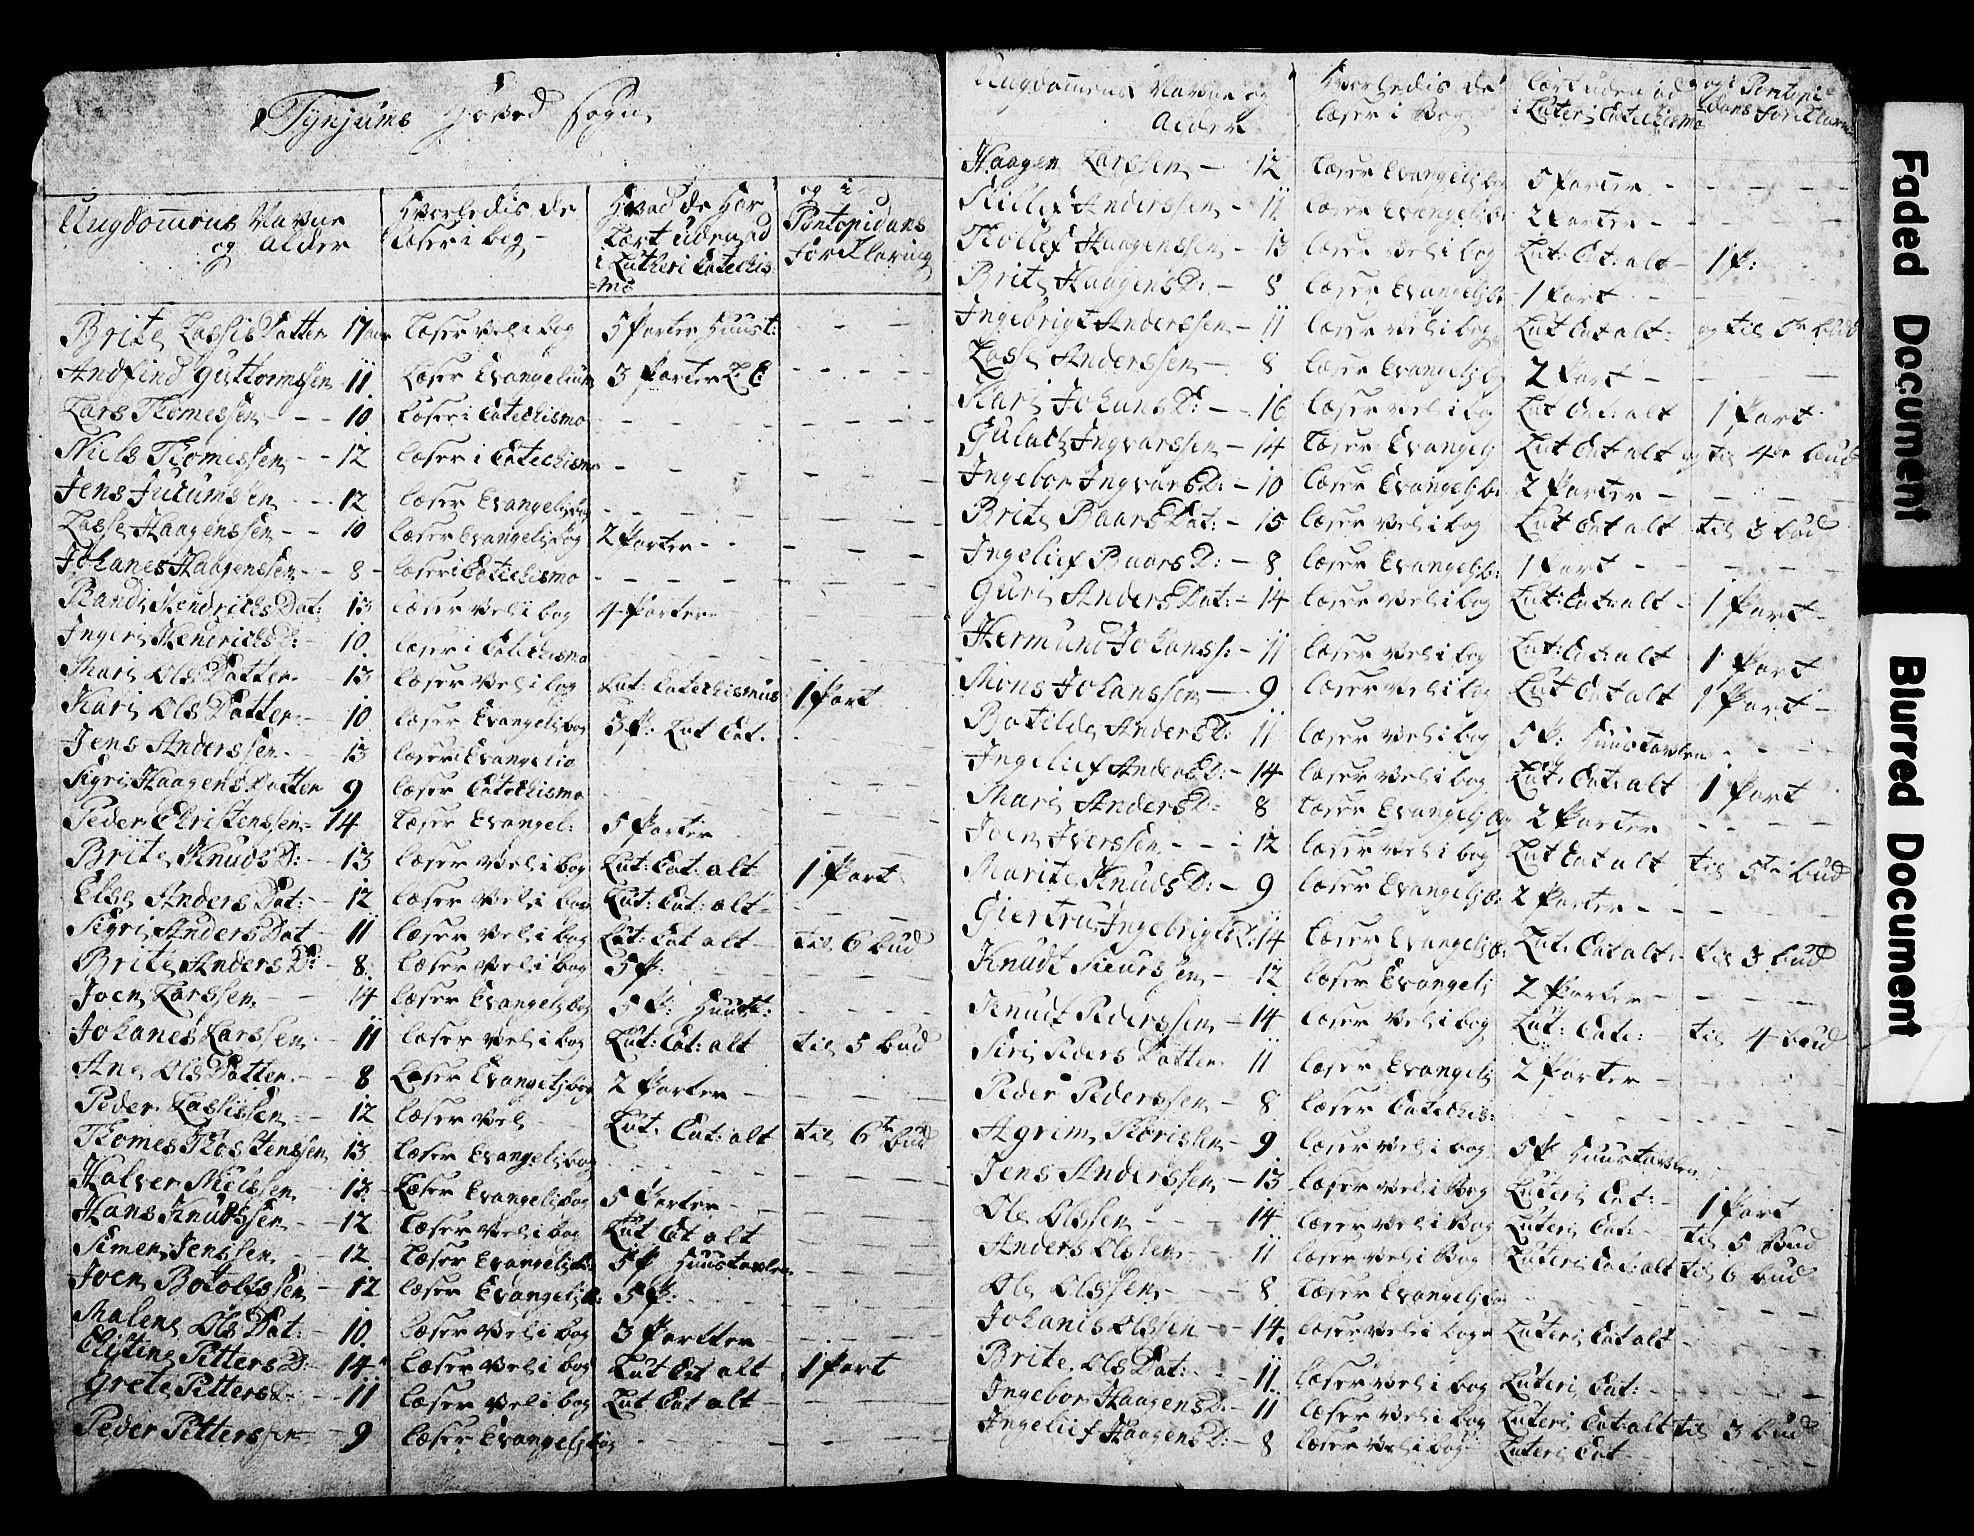 Tynjums Hoved Sogn
Ungdommens Navne og Alder | Hvorledis de Læser i bog | Hvad de har Lært uden ad i Lutheri Catechismo | og i Pontopidans Forklaring
Brite Lassis Datter 17 aar læser vel i bog 5 Parter Huust: - -
Andfind Guttormssen 11 læser Evangelium 3 Parter - - - -
Lars Thomessen - - 10 læser i Catechismo - - - -
Niels Thomessen - - 12 læser i Catechismo - - - -
Jens 12 læser Evangelij bog - - - -
Lasse Haagenssen - - 10 læser Evangelij bog 2 Parter - - - -
Johanes Haagenssen - - 8 - læser i Catechismo - - - -
Randi Hendrichs Dat: 13 læser vel i bog 4 Parter
Ingeri Hendrichs D: 10. læser i Catechismo - - - -
Mari Ols Datter 13 læser vel i bog Lut: Catechismus 1 Part
Kari Ols Datter - 10 læser Evangelij bog 3 P: Lut Cat.
Jens Anderssen - 13 læser i Evangelio
Sigri Haagens Datter 9 læser Catechismo - - - -
Peder Christenssen - 14 læser Evangel: 5 Parter
Brite Knuds D: - 13 læser vel i bog Lut: Cat: alt 1 Part
Else Anders Dat: - 12 læser vel i bog Lut: Cat: alt - - - -
Sigri Anders Dat - 11 læser vel i bog Lut: Cat alt - til 6 bud
Brite Anders D: - 8 læser vel i bog 5 P: - - - -
Joen Larssen - - 14 læser Evangelij bog 5 P: Huust: - - - -
Johanes Larssen 11 læser vel i bog Lut: Cat: alt til 5 bud
Ane Ols Datter - 8 Læser Evangelij bog 2 Parter - - - -
Peder Lassissen - 12 læser vel - Lut: Cat: alt til 6te bud
Thomes Thostenssen 13 læser Evangelij bog - - - -
Halver 13 Læser Evangelij bog 5 Parter - - - -
Hans Knudssen - - 12 læser vel i bog Lut Cat alt - - -
Simen Jenssen - - 12 læser Evangelij B: 5 P Huustavlen - - -
Joen Botolfssen - 12 læser Evangelij B: 5 P: - - - -
Malene Ols Dat: - 10. læser vel i bog 3 Partter - - - -
Cistine Pitters D: - 14 læser vel i bog Lut Cat alt 1 Part
Grete Pitters D: - 11 læser vel i bog Lut Cat alt - - - -
Peder Pitterssen - 9 læser Evangelij bog - - - -
Ungdommens Navne og Alder | Hvorledis de læser i Bog | lært uden ad i Luteri Catechismo | og i Pontopidans Forklaring
Haagen Larssen - 12 læser Evangelij bog 5 Parter - - - -
Anderssen - 11 læser Evangelij B: 2 Parter - - - -
Tollef Haagenssen - 13 læser vel i bog Lut: Cat: alt - 1 P:
Brite Haagens D: - 8 læser Evangelij B: 1 Part - - - -
Ingebrigt Anderssen - 11 læser vel i bog Lut Cat alt - og til 5te bud
Lasse Anderssen - 8 læser Evangelij bog 2 Part - - - -
Kari Johans D: - - 16 læser vel i bog Lut Cat: alt 1 Part
Ingvarssen - 14 læser Evangelij Lut Cat alt og til 4de bud
Ingebor Ingvars D: - 10 læser Evangelij B: 2 Parter - - - -
Brite Baars Dat: - 15 læser vel i bog Lut Cat alt til 3 bud
Ingelief Baars D: - 8 læser Evangelij B: 1 Part - - - -
Guri Anders Dat: - 14 læser vel i bog Lut: Cat: alt - 1 Part -
Hermund Johanss: - 11 læser vel i bog Lut: Cat: alt 1 Part
Mons Johanssen - 9 læser vel i bog Lut Cat alt 1 Part -
Botilde Anders D: 11 læser vel i bog 5 P: Huustavlen - - - -
Ingelief Anders D: - 14 læser vel i bog Lut: Cat: alt 1 Part
Mari Anders D: 8 læser Evangelij bog 2 Parter - - - -
Joen Iverssen - - - 12 læser vel i bog Lut Cat alt til 5te bud
Marite Knuds D: - 9 læser Evangelij B: 2 Parter - - - -
Giertru Ingebrigts D: 14 læser Evangelij B: Lut: Cat alt - til 3 bud
Knudt Siurssen - 12 læser Evangelij 2 Parter - - - -
Knudt Pederssen - 14 læser vel i bog Lut: Cat: til 4 bud
Siri Peders Datter 11 læser Evangelij 2 Parter -
Peder Pederssen - 8 læser Catechis: - - - -
Agrim - 9 læser vel i bog 5 P Huustavlen
Jens Anderssen - 13 læser vel i Bog Luteri Cat: - 1 Part
Ole Olssen - - - 14 læser vel i Bog Luteri Cat: - til 5 Bud
Anders Olssen - - 11 læser vel i Bog Luteri Cat: alt til 6 bud
Ole Olssen - - - 8 læser Evangelij bog - - - -
Johanis Olssen - - 14. læser vel i bog Luteri Cat alt - - - -
Brite Ols Dat: - - 11 læser vel i bog Luteri Cat: - - - -
Ingebor Haagens D: - 11 læser vel i bog Luteri Cat: alt til 3 bud
Ingelief Haagens D: - 8 læser vel i bog Luteri Cat - - - -
Faded Document
Blurred Document